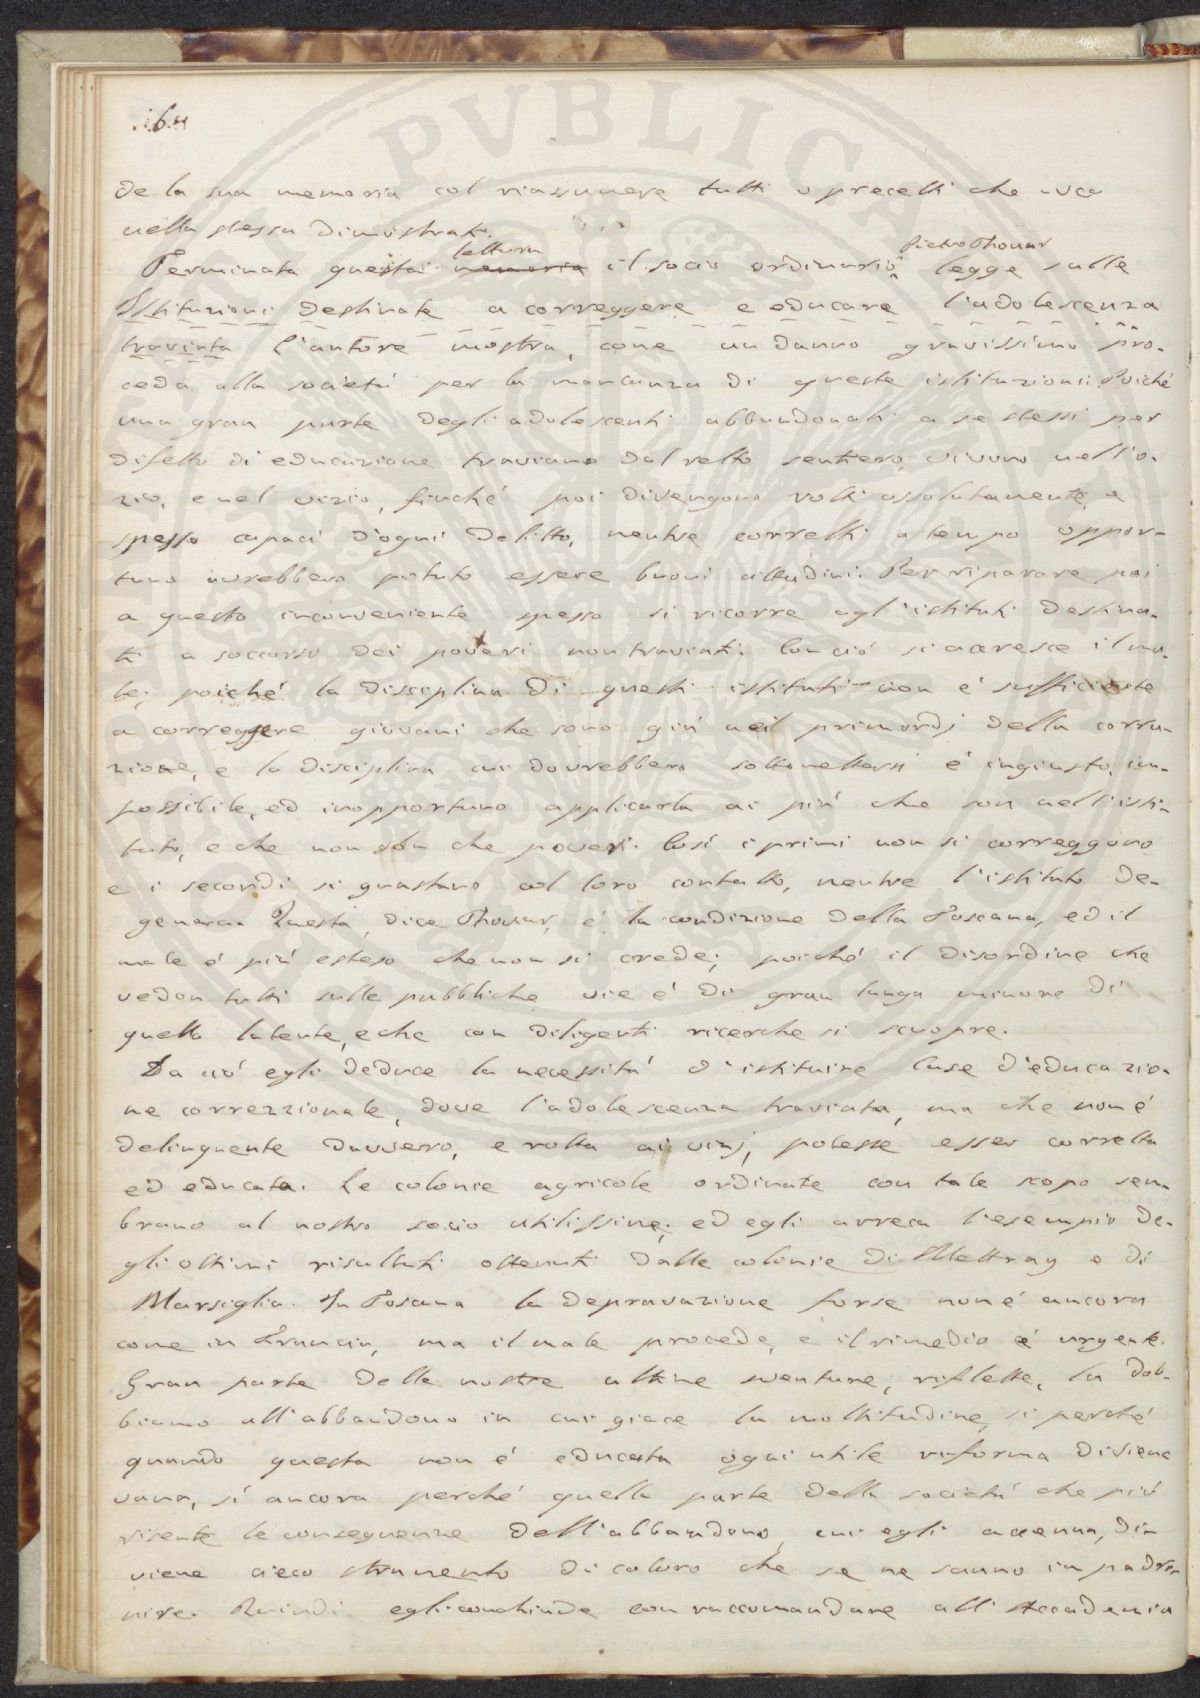 164
PVBLICA
de la sua memoria col riassumere tutti i precetti che avea
nella stessa dimostrati.
lettura
Pietro Thouar
Terminata questa memoria il socio ordinario legge sulle
Istituzioni destinate a correggere e educare l'adolescenza
traviata L'autore mostra, come un danno gravissimo pro-
ceda alla società per la mancanza di queste istituzioni. Poiché
una gran parte degli adolescenti abbandonati a se stessi per
difetto di educazione traviano dal retto sentiero, vivono nell'o-
zio, e nel vizio, finché poi divengono rotti assolutamente, e
spesso capaci d'ogni delitto, mentre corretti a tempo oppor-
tuno avrebbero potuto essere buoni cittadini. Per riparare poi
a questo inconveniente spesso si ricorre agl'istituti destina-
ti a soccorso dei poveri non traviati. Con ciò si accresce il ma-
le; poiché la disciplina di questi istituti non è sufficiente
a correggere giovani che sono già nei primordj della corru-
zione, e la disciplina cui dovrebbero sottomettersi è ingiusto, im-
possibile, ed inopportuno applicarla ai più che son nell'isti-
tuto, e che non son che poveri. Così i primi non si correggono
e i secondi si guastano col loro contatto, mentre l'istituto de-
genera. Questa, dice Thouar, è la condizione della Toscana, ed il
male è più esteso che non si crede; poiché il disordine che
vedon tutti sulle pubbliche vie è di gran lunga minore di
quello latente, e che con diligenti ricerche si scuopre.
Da ciò egli deduce la necessità d'istituire Case d'educazio-
ne correzzionale, dove l'adolescenza traviata, ma che non è
delinquente davvero, e rotta ai vizj, potesse esser corretta
ed educata. Le colonie agricole ordinate con tale scopo sem-
brano al nostro socio utilissime; ed egli arreca l'esempio de-
gli ottimi risultati ottenuti dalle colonie di Mettray e di
Marsiglia. In Toscana la depravazione forse non è ancora
come in Francia, ma il male procede, e il rimedio è urgente.
Gran parte delle nostre ultime sventure, riflette, la dob-
biamo all'abbandono in cui giace la moltitudine, sì perché
quando questa non è educata ogni utile riforma diviene
vana, sì ancora perché quella parte della società che più
risente le conseguenze dell'abbandono, cui egli accenna, di-
viene cieco strumento di coloro che se ne sanno impadro-
nire. Quindi egli conchiude con raccomandare all'Accademia